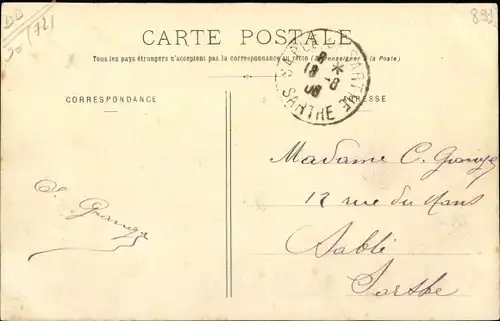 DD
72
893
CARTE POSTALE
Tous les pays étrangers n'acceptent pas la correspondance au recto (se renseigner à la Poste)
18 -8
06
SARTHE
CORRESPONDANCE
ADRESSE
Madame C. Grange
12 rue du Mans
Sablé
Sarthe
C. Grange